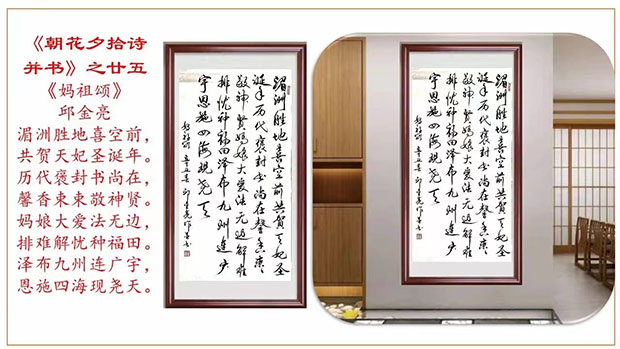 《朝花夕拾诗
并书》之廿五
《妈祖颂》
邱金亮
湄洲胜地喜空前，
共贺天妃圣诞年。
历代褒封书尚在，
馨香束束敬神贤。
妈娘大爱法无边，
排难解忧种福田。
泽布九州连广宇，
恩施四海现尧天。
湄洲胜地喜空前共贺天妃圣
诞年历代褒封书尚在馨香束々
敬神贤妈娘大爱法无边解难
排忧种福田泽布九州连广
宇恩施四海现尧天
湄洲胜地喜空前共贺天妃圣
诞年历代褒封书尚在馨香束々
敬神贤妈娘大爱法无边解难
排忧种福田泽布九州连广
宇恩施四海现尧天